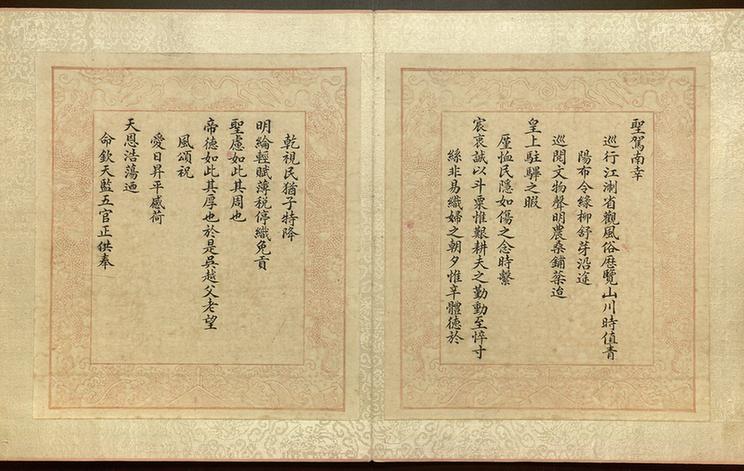 聖駕南幸
巡行江淛省觀風俗歷覽山川時值青
陽布令緣柳舒芽沿途
巡閱文物聲明農桑鋪菜迨
皇上駐驆之暇
厪恤民隱如傷之念時繫
宸衷誠以斗粟惟艱耕夫之勤動至悴寸
絲非易織婦之朝夕惟辛體德於
乾視民猶子特降
明綸輕賦薄税停織免貢
聖慮如此其周也
帝德如此其厚也於是吳越父老望
風頌祝
愛日昇平感荷
天恩浩蕩廼
命欽天監五官正供奉